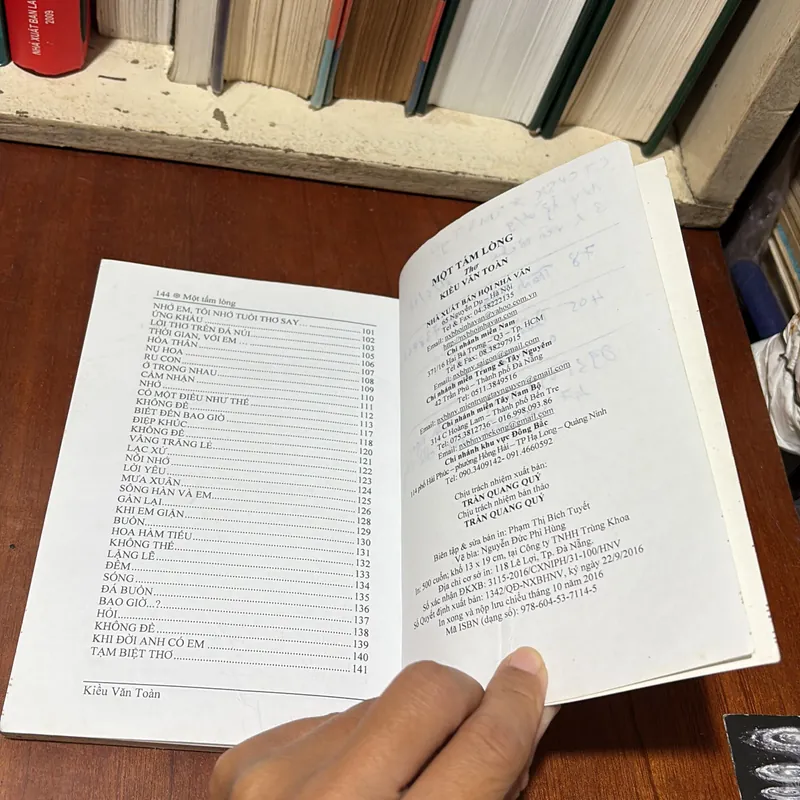 NHÀ XUẤT BẢN LA
2009
144 ❁ Một tấm lòng
NHỚ EM, TÔI NHỚ TUỔI THƠ SAY... 101
ỨNG KHẨU 102
LỜI THƠ TRÊN ĐÁ NÚI 103
THỜI GIAN, VỚI EM 105
HÓA THÂN 106
NỤ HOA 107
RU CON 108
Ở TRONG NHAU 109
CẢM NHẬN 110
NHỚ 111
CÓ MỘT ĐIỀU NHƯ THẾ 112
KHÔNG ĐỀ 113
BIẾT ĐẾN BAO GIỜ 117
ĐIỆP KHÚC 118
KHÔNG ĐỀ 119
VẦNG TRĂNG LẺ 120
LẠC XỨ 121
NỖI NHỚ 122
LỜI YÊU 124
MƯA XUÂN 125
SÔNG HÀN VÀ EM 126
GẦN LẠI 128
KHI EM GIẬN 129
BUỒN 130
HOA HÀM TIẾU 131
KHÔNG THỂ 132
LẶNG LẼ 133
ĐẾM 134
SÓNG 135
ĐÁ BUỒN 136
BAO GIỜ...? 137
HỎI 138
KHÔNG ĐỀ 139
KHI ĐỜI ANH CÓ EM 140
TẠM BIỆT THƠ 141
Kiều Văn Toàn
MỘT TẤM LÒNG
Thơ
KIỀU VĂN TOÀN
NHÀ XUẤT BẢN HỘI NHÀ VĂN
65 Nguyễn Du – Hà Nội
Tel & Fax: 04.38222135
Email: nxbhoinhavan@yahoo.com.vn
http://nxbhoinhavan.com
Chi nhánh miền Nam
371/16 Hai Bà Trưng – Q3 – Tp. HCM
Tel & Fax: 08.38297915
Email: nxbhnv.saigon@gmail.com
Chi nhánh miền Trung & Tây Nguyên
42 Trần Phú – Thành phố Đà Nẵng
Tel: 0511.3849516
Email: nxbhnv.mientrungtaynguyen@gmail.com
Chi nhánh miền Tây Nam Bộ
314 C Hoàng Lam – Thành phố Bến Tre
Tel: 075.3812736 – 016.998.093.86
Email: nxbhnvmekong@gmail.com
Chi nhánh khu vực Đông Bắc
114 phố Hải Phúc – phường Hồng Hải – TP Hạ Long – Quảng Ninh
Tel: 090.3409142- 091.4660592
Chịu trách nhiệm xuất bản:
TRẦN QUANG QUÝ
Chịu trách nhiệm bản thảo
TRẦN QUANG QUÝ
Biên tập & sửa bản in: Phạm Thị Bích Tuyết
Vẽ bìa: Nguyễn Đức Phi Hùng
In: 500 cuốn; khổ 13 x 19 cm, tại Công ty TNHH Trùng Khoa
Địa chỉ cơ sở in: 118 Lê Lợi, Tp. Đà Nẵng.
Số xác nhận ĐKXB: 3115-2016/CXNIPH/31-100/HNV
Số Quyết định xuất bản: 1342/QĐ-NXBHNV, ký ngày 22/9/2016
In xong và nộp lưu chiểu tháng 10 năm 2016
Mã ISBN (dạng số): 978-604-53-7114-5